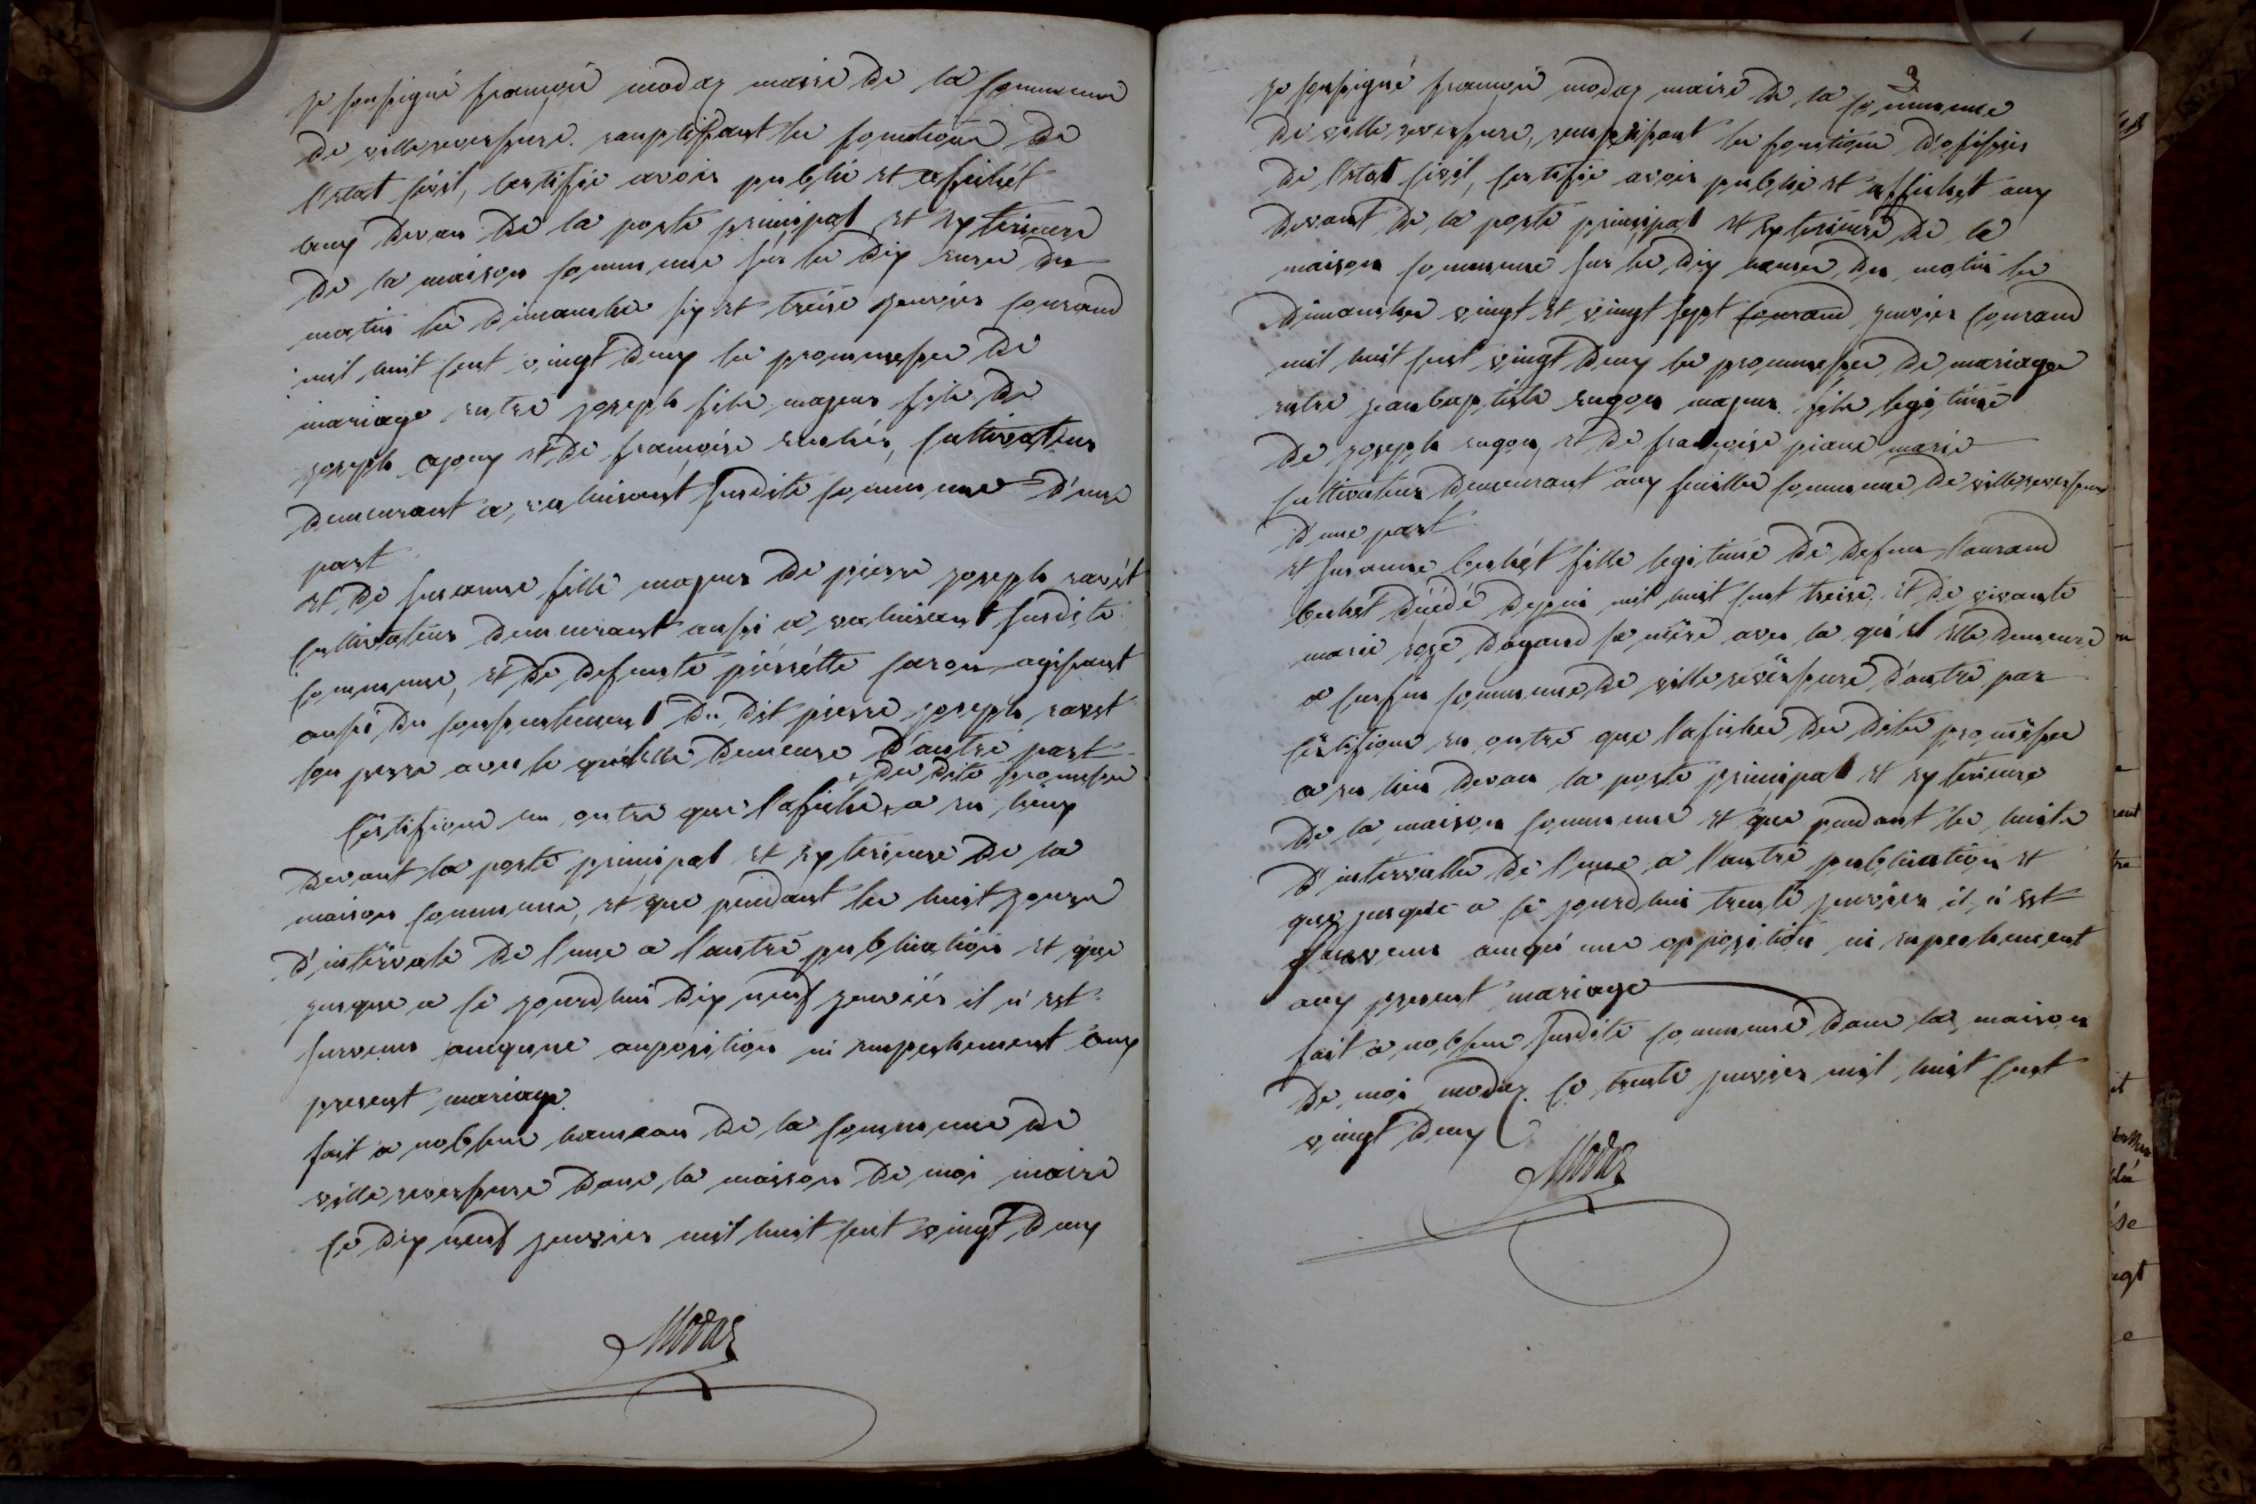 je soussigné françois modaz maire de la commune
de villereversure ramplissant les fonctions de
l'etat sivil, certifie avoir publié et afichét
aux devan de la porte prinsipal et exterieure
de la maison commune sur les dix eures du
matin les dimanches six et treise janvier courand
mil huit cent vingt deux les promesses de
mariage entre joseph fils majeur fils de
joseph ajoux et de françoise cultivateur
demeurant a susdite commune d'une
part
et de susanne fille majeur de pierre joseph ravét
cultivateur demeurant aussi a susdite
commune, et de defunte pierrétte caron agissant
ausi du consentement du dit pierre joseph ravet
son perre avec le quélle demeure d'autre part
des dite promesse
Certifions en outre que l'afiche a eu lieux
devant la porte principal et exterieure de la
maison commune, et que pendant les huit jours
d'intervale de l'une a l'autre publication et que
jusque a ce jourdhui dix neuf janvier il n'est
survenu auqune oxposition ni empeshement aux
present mariage
fait a noblens hameau de la commune de
villereversure dans la maison de moi maire
ce dix neuf janvier mil huit cent vingt deux
Modaz
3
je soussigné françois modaz maire de la commune
de villereversure, remplissant les fonctions d'ofisier
de l'etat sivil, certifie avoir publié et affichet aux
devant de la porte prinsipal et exterieure de la
maison commune sur les dix heures du matin les
dimanches vingt et vingt sept courand janvier courand
mil huit cent vingt deux les promesses de mariage
entre jeanbaptiste majeur fils legitime
de joseph et de françoise piane marie
cultivateur demeurant aux feuilles commune de villereversure
d'une part
et susanne bechét fille legitime de defun laurand
bechet décédé depuis mil huit cent treise, et de vivante
marie rose dagand sa mère avec la quélle elle demeure
a commune de villereversure d'autre par
Certifions en outre que l'afiches des dites promesses
a eu lieu devan la porte prinsipal et exterieure
de la maison commune et que pendant les huits
d'intervalles de l'une a l'autre publication et
que jusque a ce jourdhui trente janvier il n'est
survenu auqu'une opposition ni enpeshement
aux present mariage
fait a noblens susdite commune dans la maison
de moi modaz ce trente janvier mil huit cent
vingt deux
Modaz